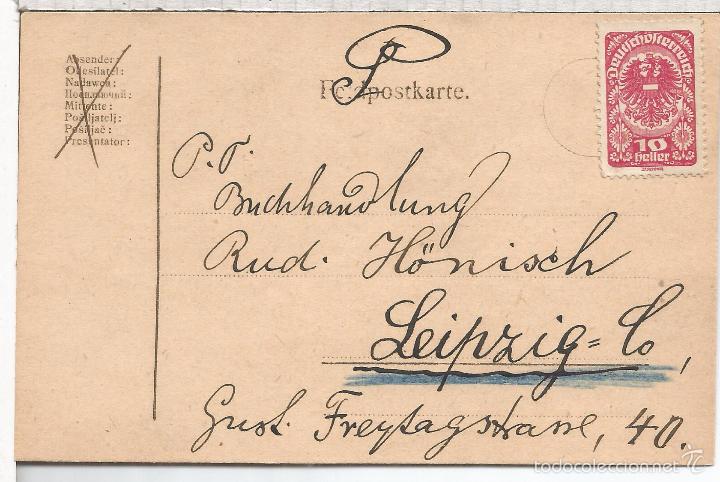 Absender:
Odesílatel:
Nadawca:
Mittente:
Pošiljatelj:
Presentator:
Feldpostkarte.
Deutschösterreich
10
heller
P. T.
Buchhandlung
Rud. Hönisch
Leipzig=Co,
Gust. Freytagstrasse, 40.
todocoleccion.net